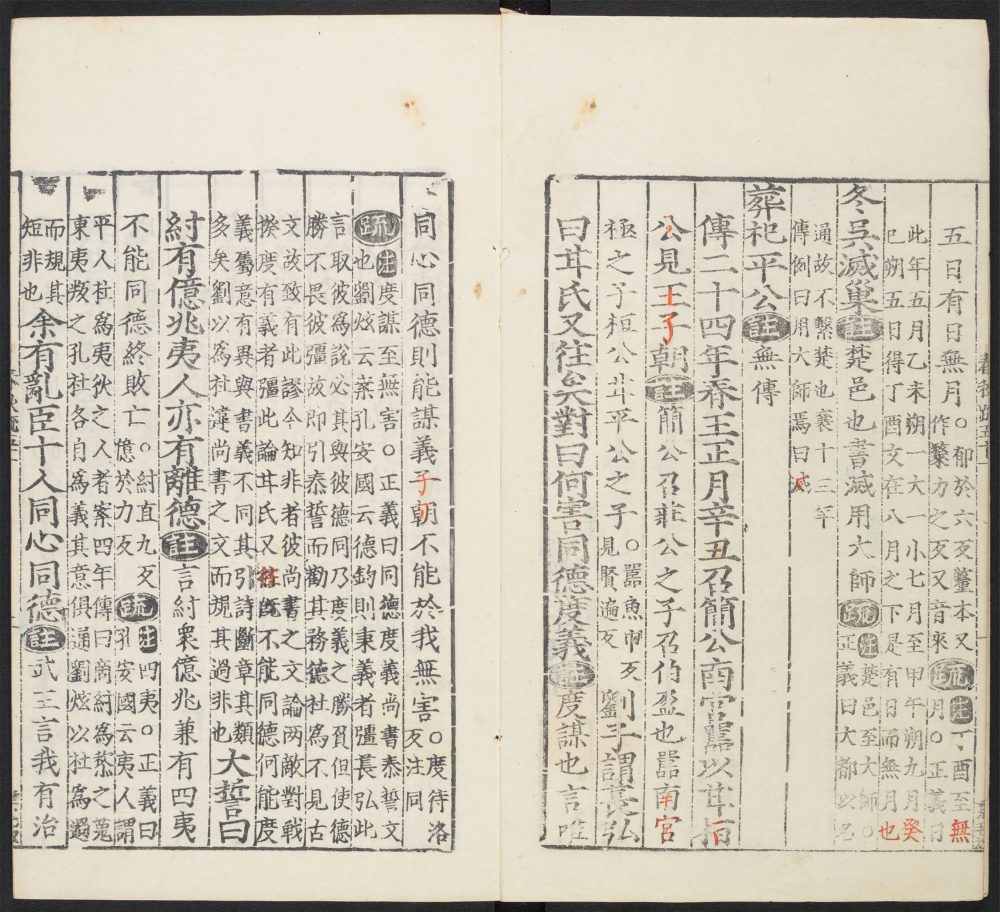 五日有日無月○郁於六反釐本又作斄力之反又音來疏注丁酉至無月○正義曰
此年五月乙未朔一大一小七月至甲午朔九月癸
巳朔五日得丁酉文在八月之下是有日而無月也
冬吳滅巢註楚邑也書滅用大師疏注楚邑至大師○正義曰大都以名
通故不繫楚也襄十三年
傳例曰用大師焉曰滅
葬杞平公註無傳
傳二十四年春王正月辛丑召簡公南宮嚚以甘桓
公見王子朝註簡公召莊公之子召伯盈也嚚南宮
極之子桓公甘平公之子○嚚魚巾反見賢遍反劉子謂萇弘
曰甘氏又往矣對曰何害同德度義註度謀也言唯
同心同德則能謀義子朝不能於我無害○度待洛反注同
疏注度謀至無害○正義曰同德度義尚書泰誓文
也劉炫云案孔安國云德鈞則秉義者彊長弘此
言取彼為說必其與彼德同乃度義之勝負但使德
勝不畏彼彊故即引泰誓而勸其務德杜為不見古
文故致有此謬今知非者彼尚書之文論兩敵對戰
揆度有義者彊此論甘氏又往既不能同德何能度
義屬意有異與書義不同其引詩斷章其類
多矣劉以為杜違尚書之文而規其過非也大誓曰
紂有億兆夷人亦有離德註言紂衆億兆兼有四夷
不能同德終敗亡○紂直九反億於力反疏注四夷○正義曰孔安國云夷人謂
平人杜為夷狄之人者案四年傳曰商紂為黎之蒐
東夷叛之孔杜各自為義其意俱通劉炫以杜為過
而規其短非也余有亂臣十人同心同德註武王言我有治